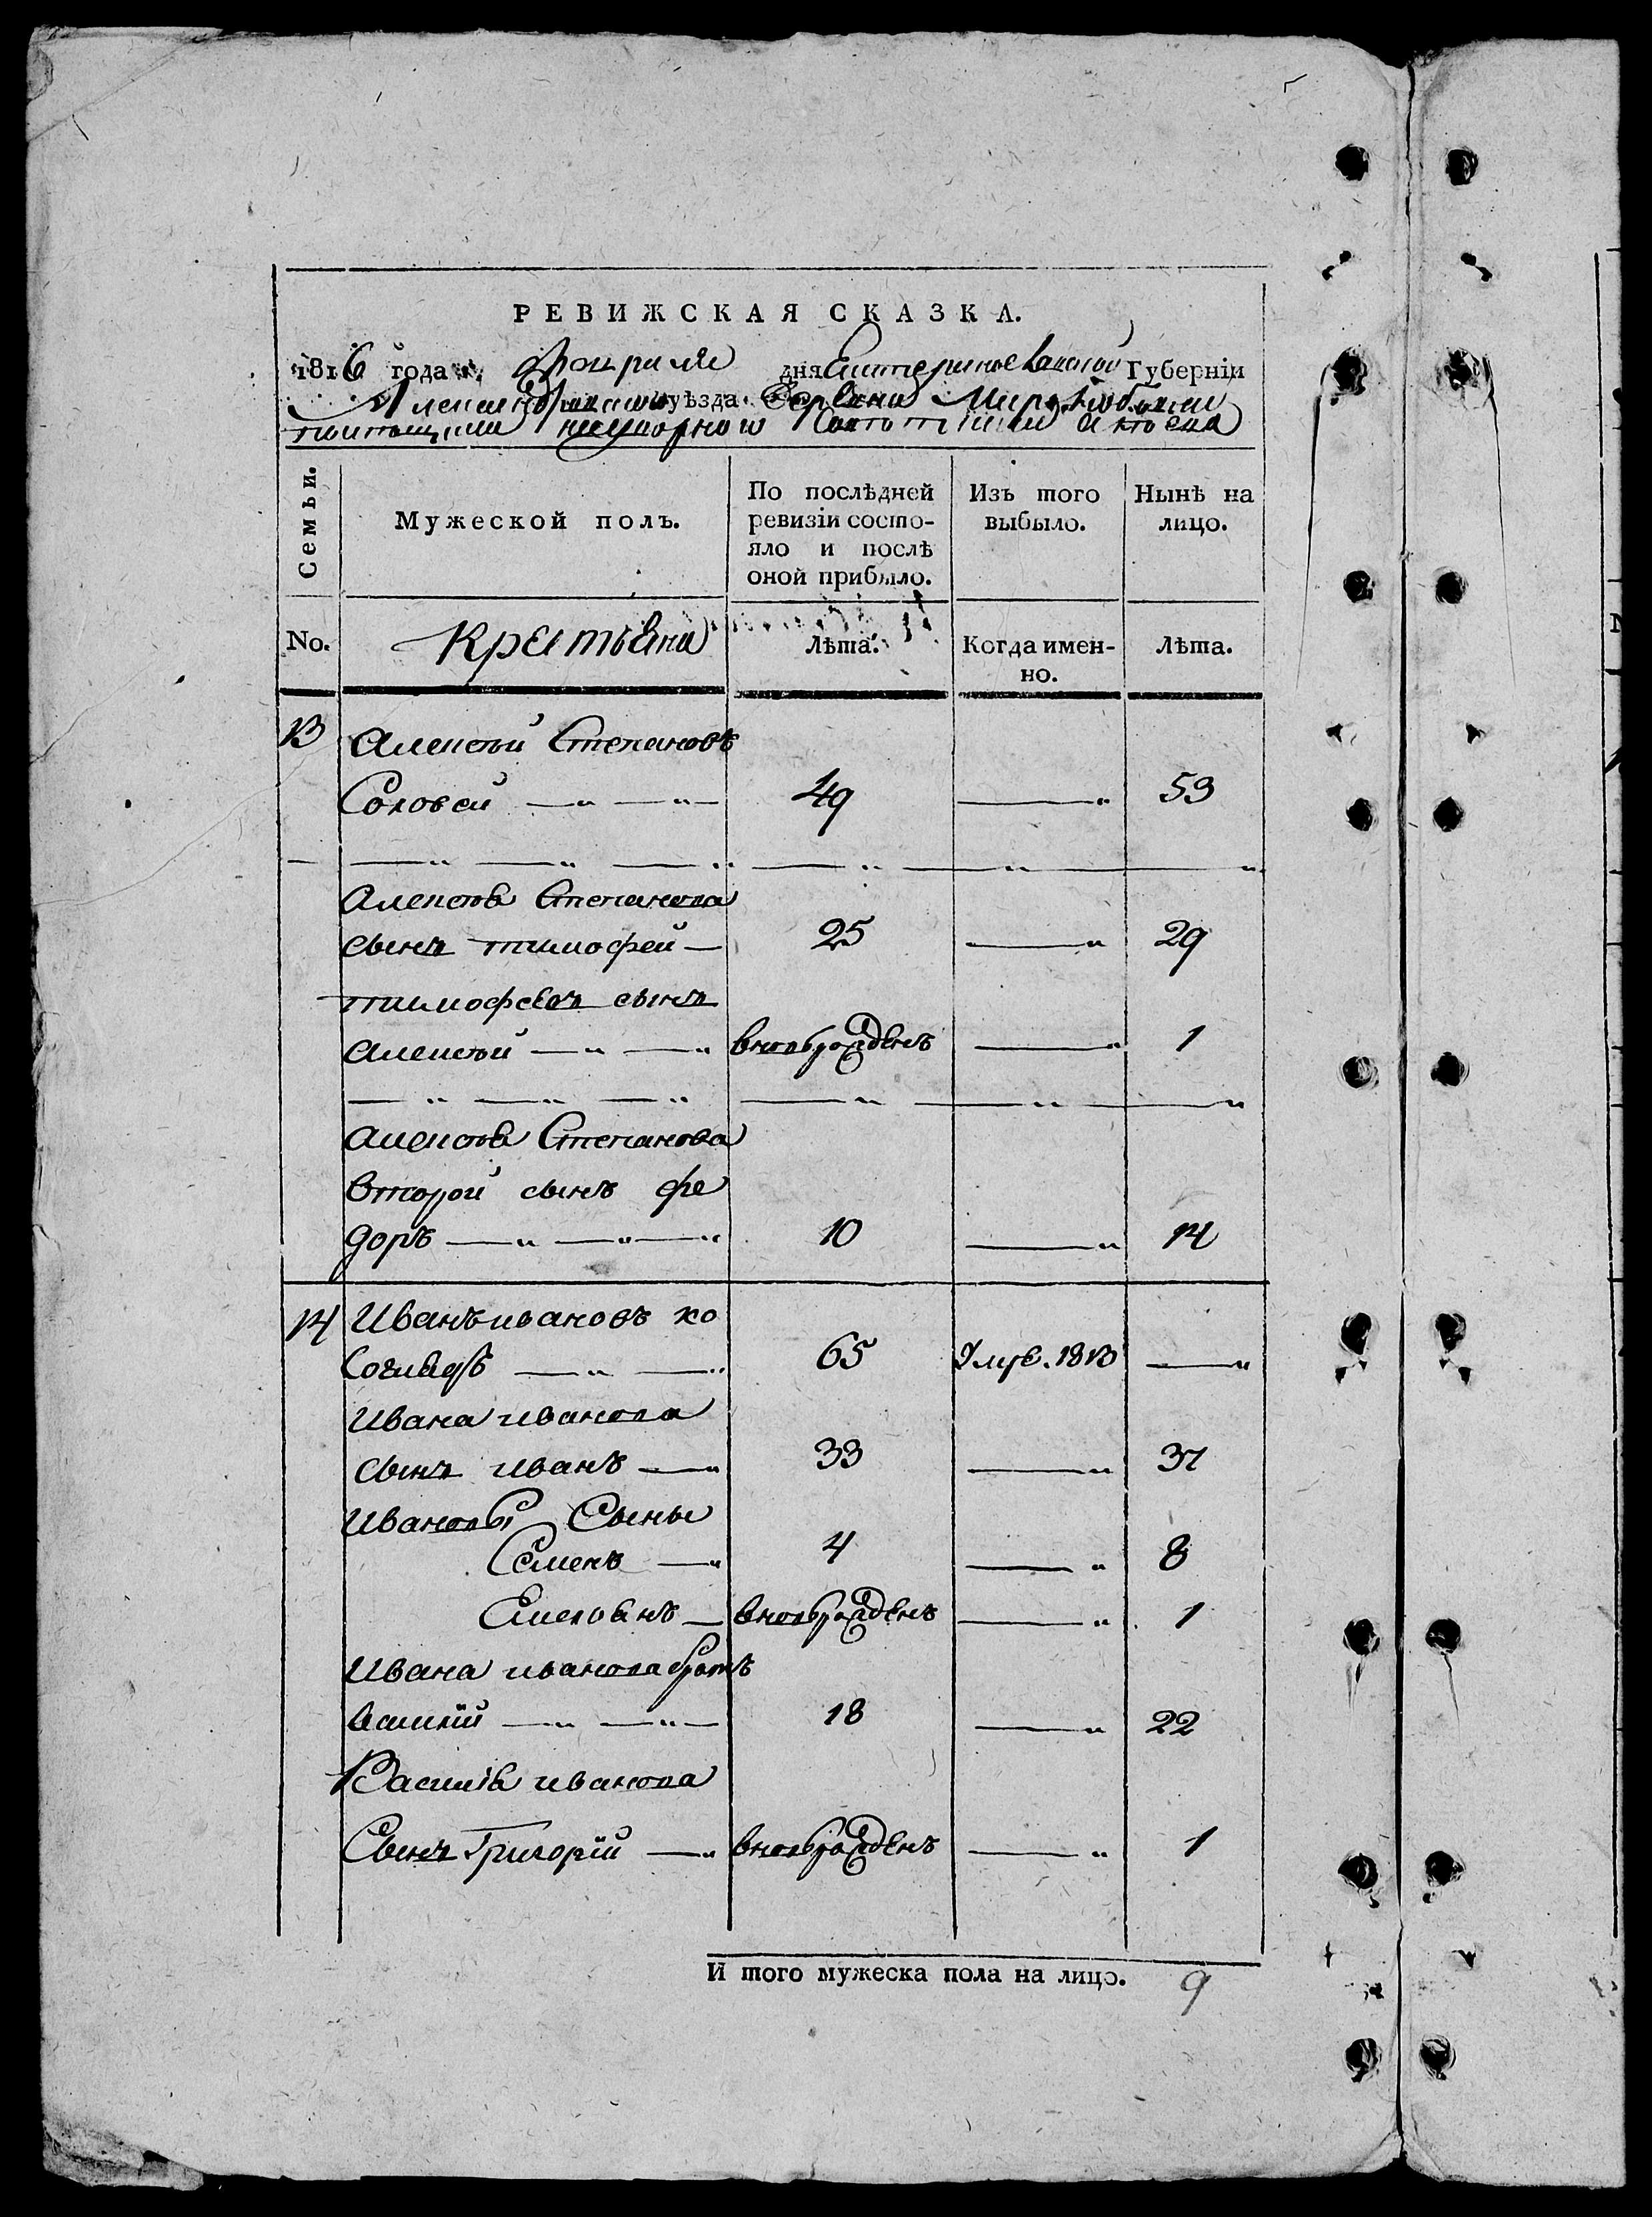 РЕВИЖСКАЯ СКАЗКА.
1816 года Априля дня Екатеринославской Губерніи
Александровскаго уѣзда Деревни Миролюбовки
помещицы
Семьи.
Мужеской полъ.
По послѣдней ревизіи состо-
яло и послѣ
оной прибыло.
Изъ того
выбыло.
Нынѣ на
лицо.
No.
Крестьяна
Лѣта.
Когда имен-
но.
Лѣта.
13 Алексѣй Степановъ
Соловей 49 53
Алексѣя Степанова
сынъ тимофей 25 29
тимофеевъ сынъ
алексѣй вновьрожденъ 1
алексѣя Степанова
второй сынъ фе
доръ 10 14
14 Иванъ ивановъ ко
65 Умре. 1813
Ивана иванова
сынъ иванъ 33 37
Ивановы Сыны
Семенъ 4 8
Емельянъ вновьрожденъ 1
Ивана иванова братъ
василій 18 22
Василія иванова
Сынъ Григорій вновьрожденъ 1
И того мужеска пола на лицо. 9